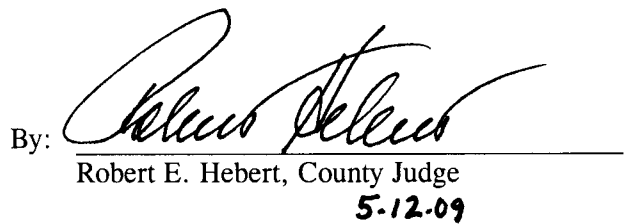 By: Robert Hebert
Robert E. Hebert, County Judge
5-12-09